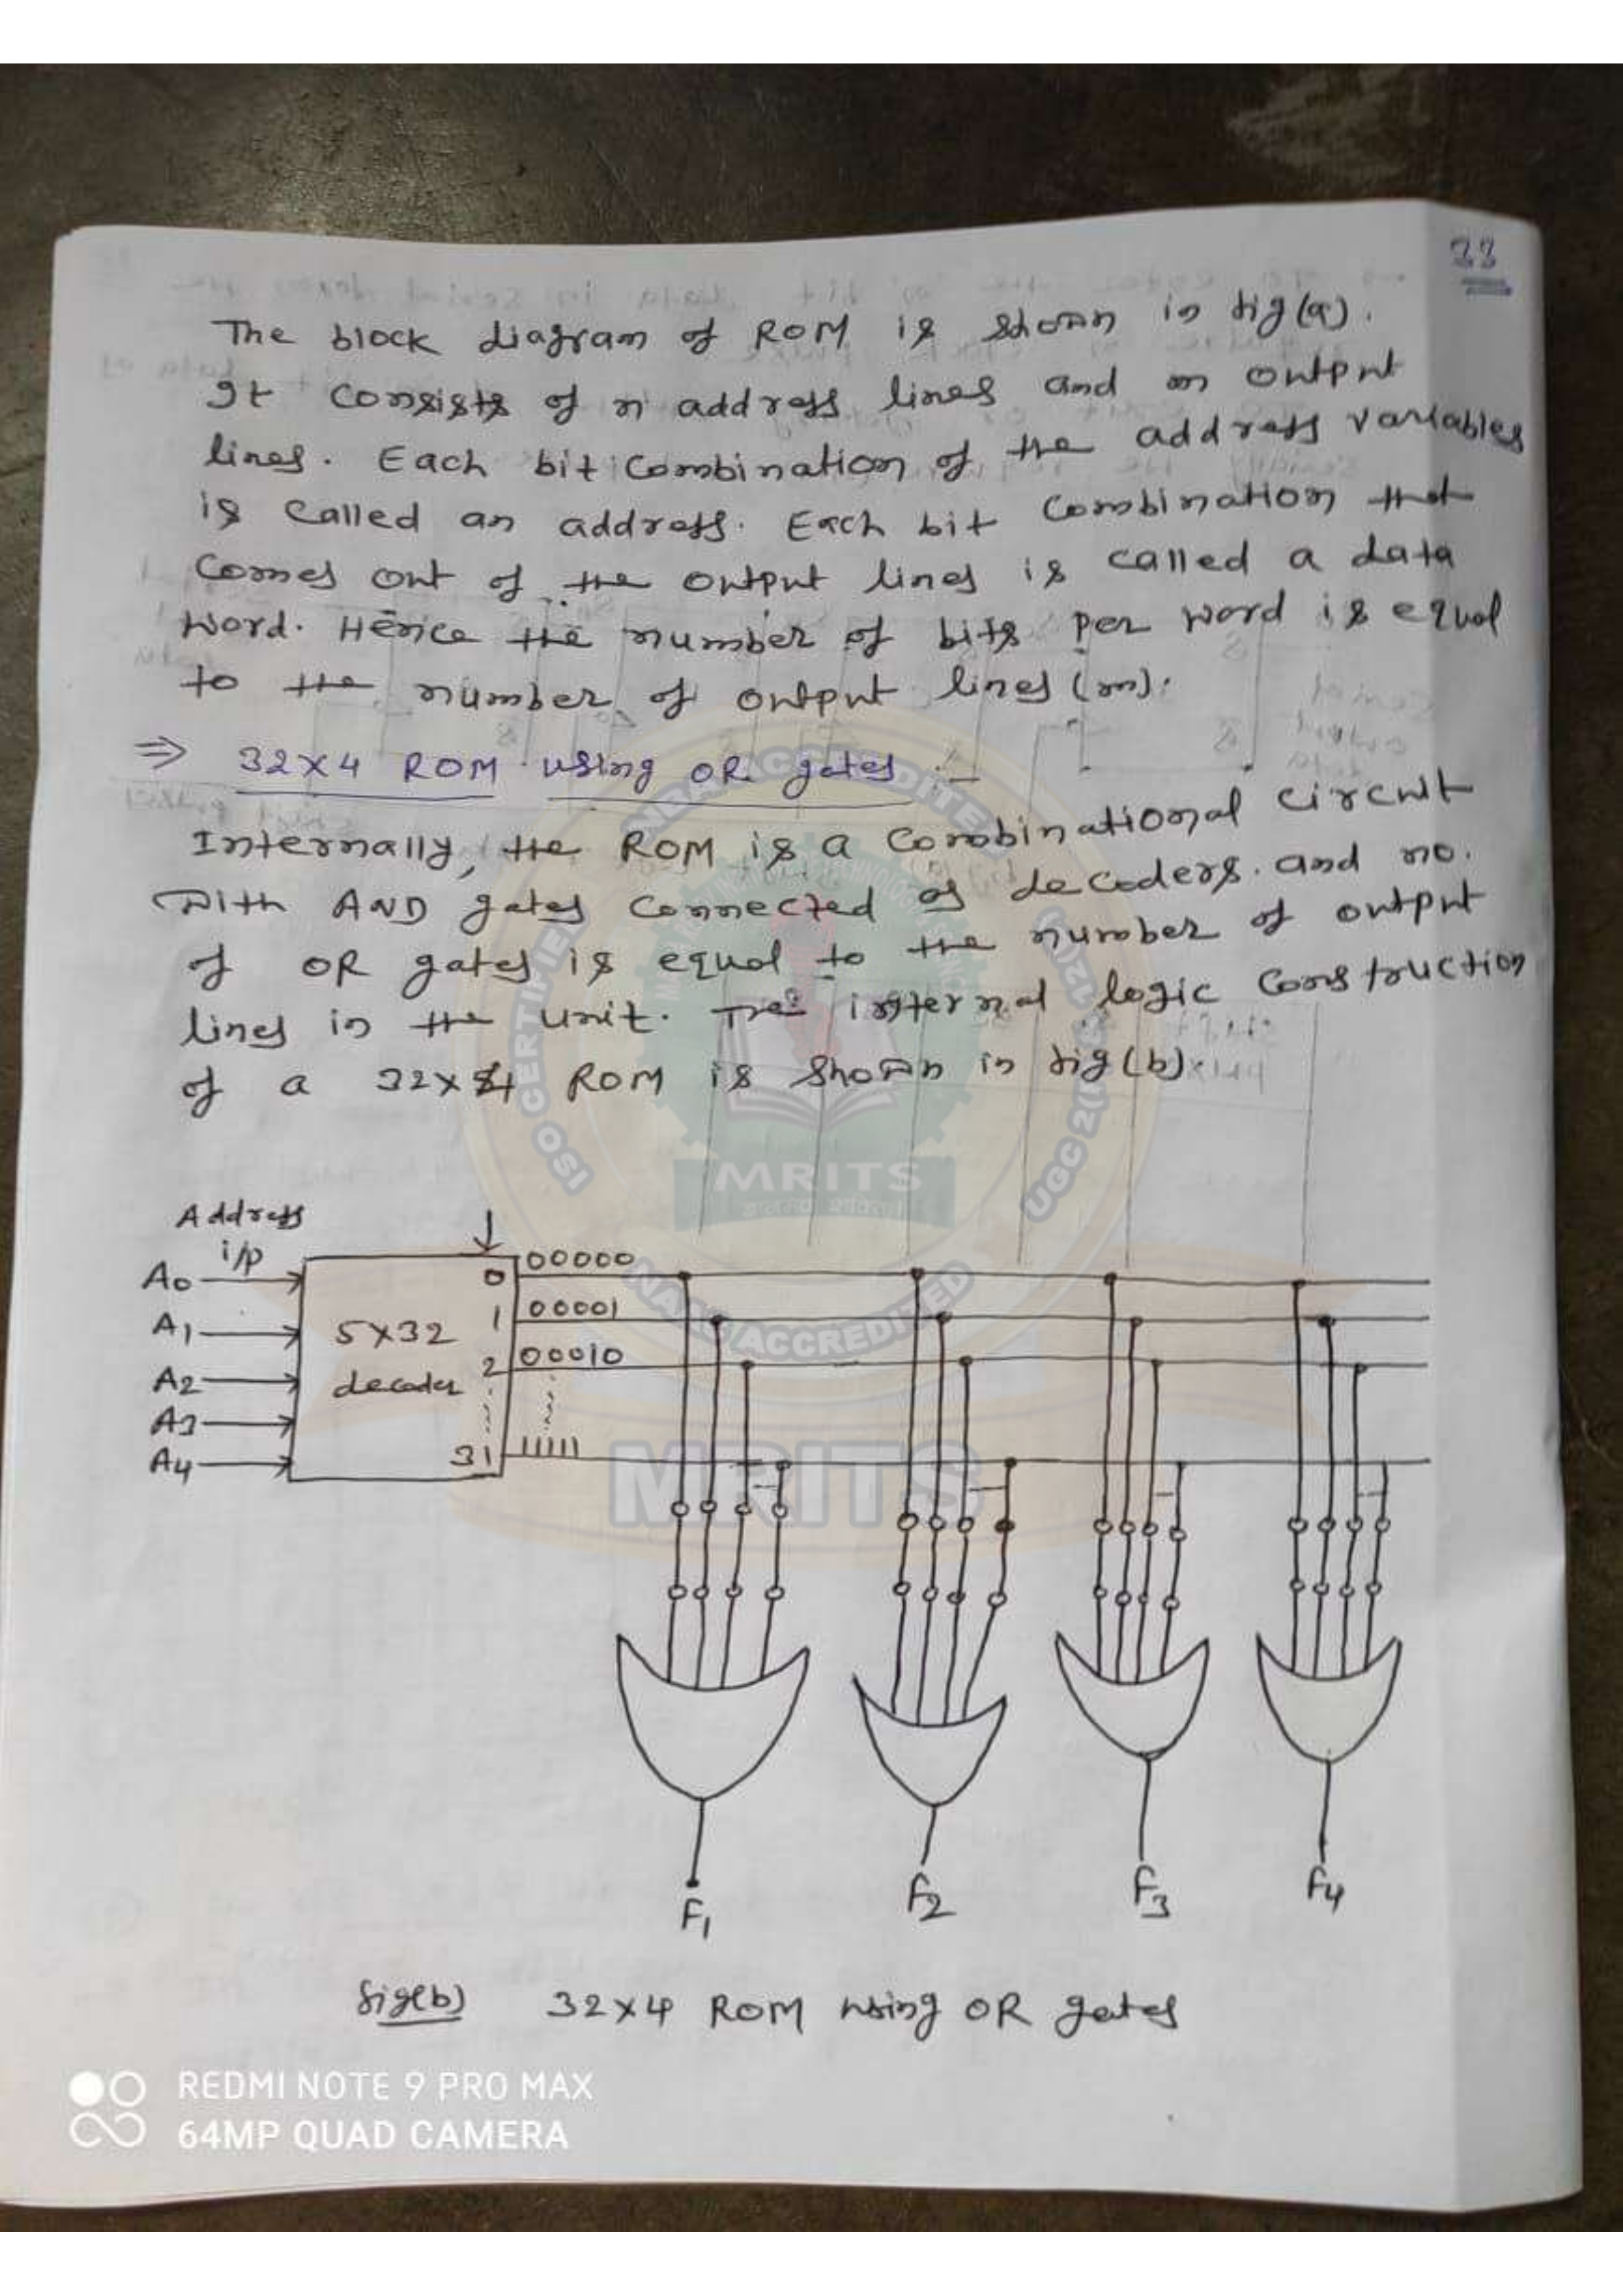 33
The block diagram of ROM is shown in fig(a).
It consists of n address lines and m output
lines. Each bit combination of the address variables
is called an address. Each bit combination that
comes out of the output lines is called a data
word. Hence the number of bits per word is equal
to the number of output lines (m).
⇒ 32×4 ROM using OR gates :-
Internally, the ROM is a combinational circuit
with AND gates connected as decoders. and no.
of OR gates is equal to the number of output
lines in the unit. The internal logic construction
of a 32×4 ROM is shown in fig(b).
Address
i/p
A0
A1
A2
A3
A4
5×32
decoder
0
1
2
31
00000
00001
00010
11111
F1
F2
F3
F4
fig(b) 32×4 ROM using OR gates
NBA ACCREDITED
CERTIFIED
OSI
UGC 2(f)
MRITS
NAAC ACCREDITED
MRITS
REDMI NOTE 9 PRO MAX
64MP QUAD CAMERA